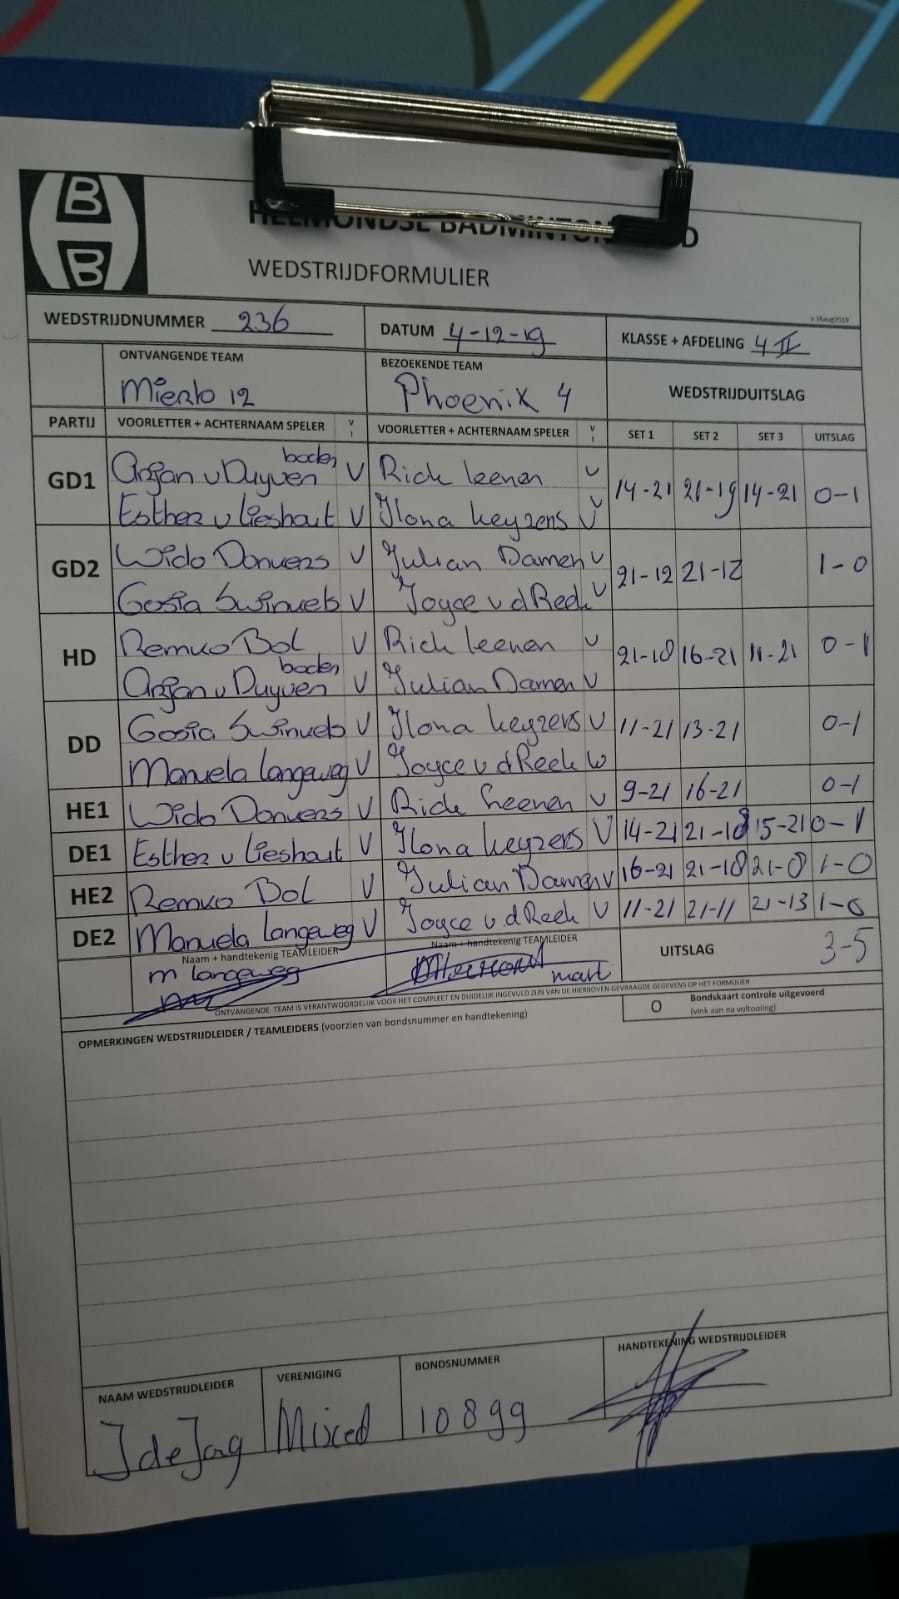 HELMONDSE BADMINTON
WEDSTRIJDFORMULIER
WEDSTRIJDNUMMER 236 DATUM 4-12-19 KLASSE + AFDELING 4 II
ONTVANGENDE TEAM BEZOEKENDE TEAM WEDSTRIJDUITSLAG
Mierlo 12 Phoenix 4
PARTIJ VOORLETTER + ACHTERNAAM SPELER V VOORLETTER + ACHTERNAAM SPELER V SET 1 SET 2 SET 3 UITSLAG
GD1 Arjan v Duyven boden V Rick Leenen V 14-21 21-19 14-21 0-1
Esther v Lieshout V Ilona Keyzers V
GD2 Wido Donvers V Julian Damen V 21-12 21-12 1-0
Gosia Swinuels V Joyce v d Reek V
HD Remko Bol V Rick Leenen V 21-18 16-21 11-21 0-1
Arjan v Duyven boden V Julian Damen V
DD Gosia Swinuels V Ilona Keyzers V 11-21 13-21 0-1
Manuela Langeweg V Joyce v d Reek V
HE1 Wido Donvers V Rick Leenen V 9-21 16-21 0-1
DE1 Esther v Lieshout V Ilona Keyzers V 14-21 21-18 15-21 0-1
HE2 Remko Bol V Julian Damen V 16-21 21-18 21-8 1-0
DE2 Manuela Langeweg V Joyce v d Reek V 11-21 21-11 21-13 1-0
Naam + handtekenig TEAMLEIDER Naam + handtekenig TEAMLEIDER UITSLAG 3-5
m langeweg
ONTVANGENDE TEAM IS VERANTWOORDELIJK VOOR HET COMPLEET EN DUIDELIJK INGEVULD ZIJN VAN DE HIERBOVEN GEVRAAGDE GEGEVENS OP HET FORMULIER
O Bondskaart controle uitgevoerd
(vink aan na voltooiing)
OPMERKINGEN WEDSTRIJDLEIDER / TEAMLEIDERS (voorzien van bondsnummer en handtekening)
NAAM WEDSTRIJDLEIDER VERENIGING BONDSNUMMER HANDTEKENING WEDSTRIJDLEIDER
J de Jong Mixed 10899